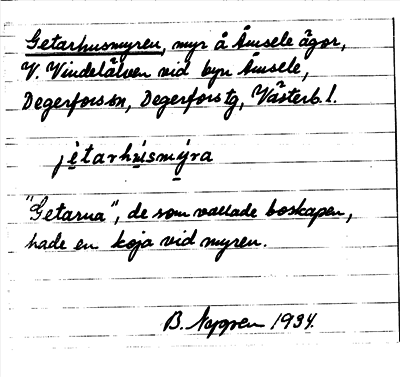 Getarhusmyren, myr å Åmsele ägor,
V. Vindelälven vid byn Åmsele,
Degerfors sn, Degerfors tg, Västerb. l.
jetarhusmýra
"Getarna", de som vallade boskapen,
hade en koja vid myren.
B. Nygren 1934.